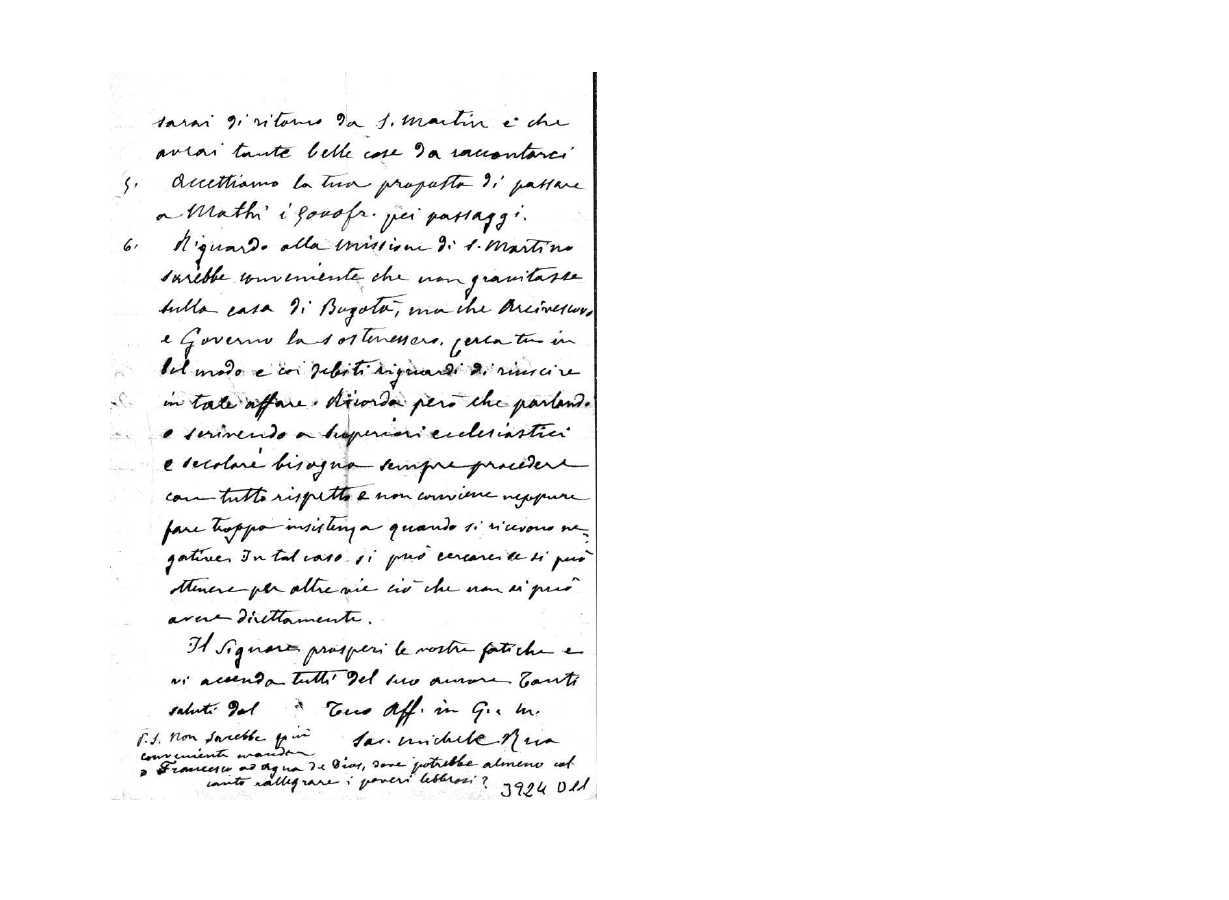 sarai di ritorno da S. Martin e che
avrai tante belle cose da raccontarci
5. Accettiamo la tua proposta di passare
a Mathi i pei passaggi.
6. Riguardo alla missione di S. Martino
sarebbe conveniente che non gravitasse
sulla casa di Bogotà, ma che Arcivescovo
e Governo la sostenessero. Cerca tu in
bel modo e coi debiti riguardi di riuscire
in tale affare. Ricorda però che parlando
o scrivendo a Superiori ecclesiastici
e secolari bisogna sempre procedere
con tutto rispetto e non conviene neppure
fare troppa insistenza quando si ricevono ne=
gative. In tal caso si può cercare se si può
ottenere per altre vie ciò che non si può
avere direttamente.
Il Signore prosperi le vostre fatiche e
vi accenda tutti del suo amore. Tanti
saluti dal Tuo Aff. in G. e M.
Sac. Michele Rua
P.S. Non sarebbe più
conveniente mandar
D Francesco ad Agua de Dios, dove potrebbe almeno col
canto rallegrare i poveri lebbrosi?
3924